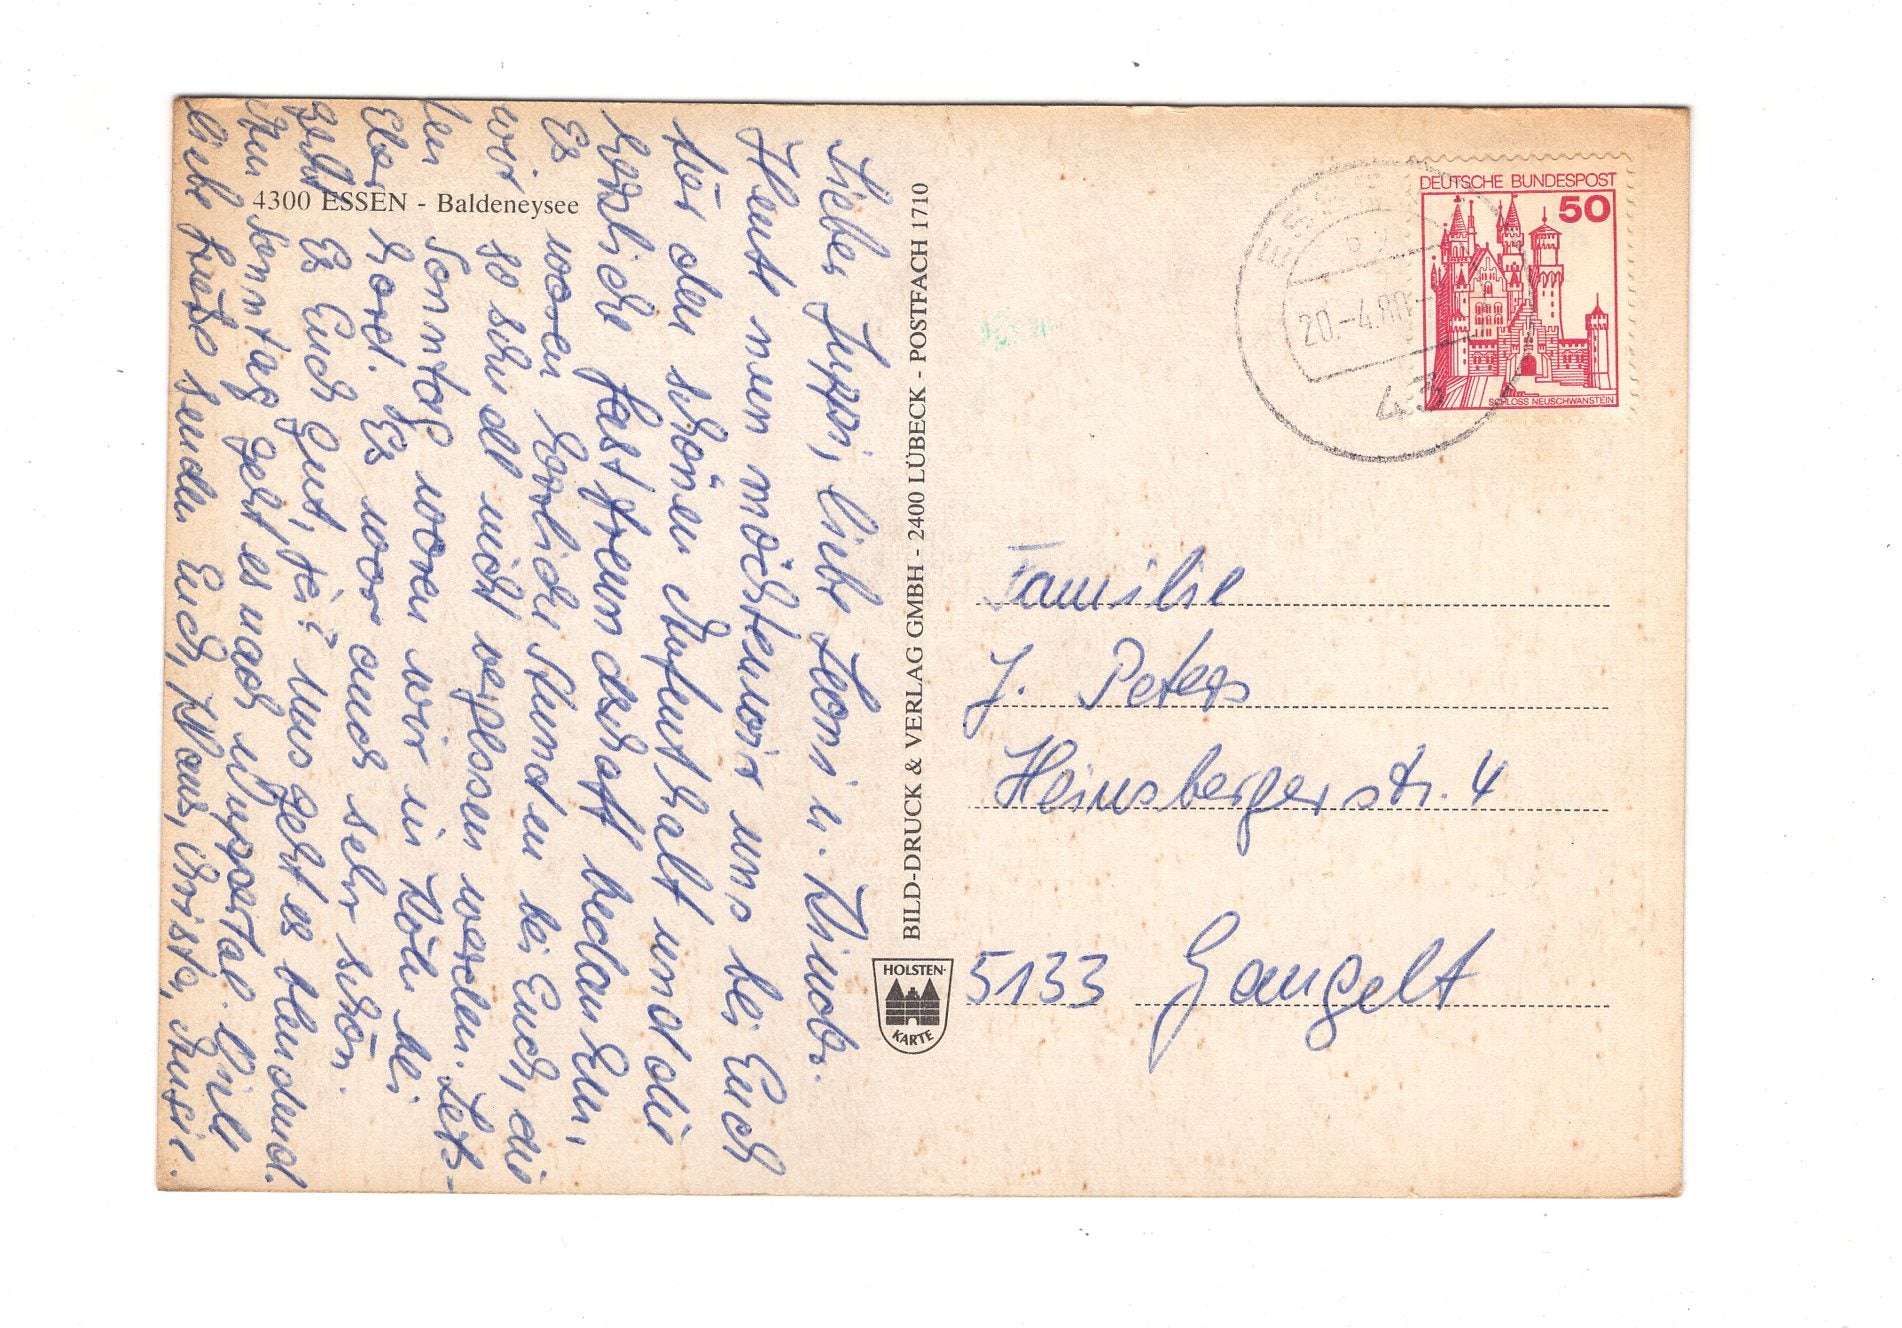 4300 ESSEN - Baldeneysee
Lieber Juppi, liebe Leoni u. Kinder.
Heute nun möchten wir uns bei Euch
für den schönen Aufenthalt und die
herzliche Gastfreundschaft bedanken,
Es waren herrliche Stunden bei Euch, die
wir so schnell nicht vergessen werden. Letz-
ten Sonntag waren wir in Köln bei
Eberhard. Es war auch sehr schön.
geht Es Euch gut, ja? Uns geht es blendend.
Am Sonntag geht es nach Wuppertal. Viele
liebe Grüße senden Euch, Klaus, Christa,
BILD-DRUCK & VERLAG GMBH - 2400 LÜBECK - POSTFACH 1710
HOLSTEN-
KARTE
DEUTSCHE BUNDESPOST
50
SCHLOSS NEUSCHWANSTEIN
ESSEN
20.-4.80
43
Familie
J. Peters
Heinsbergerstr. 4
5133 Gangelt